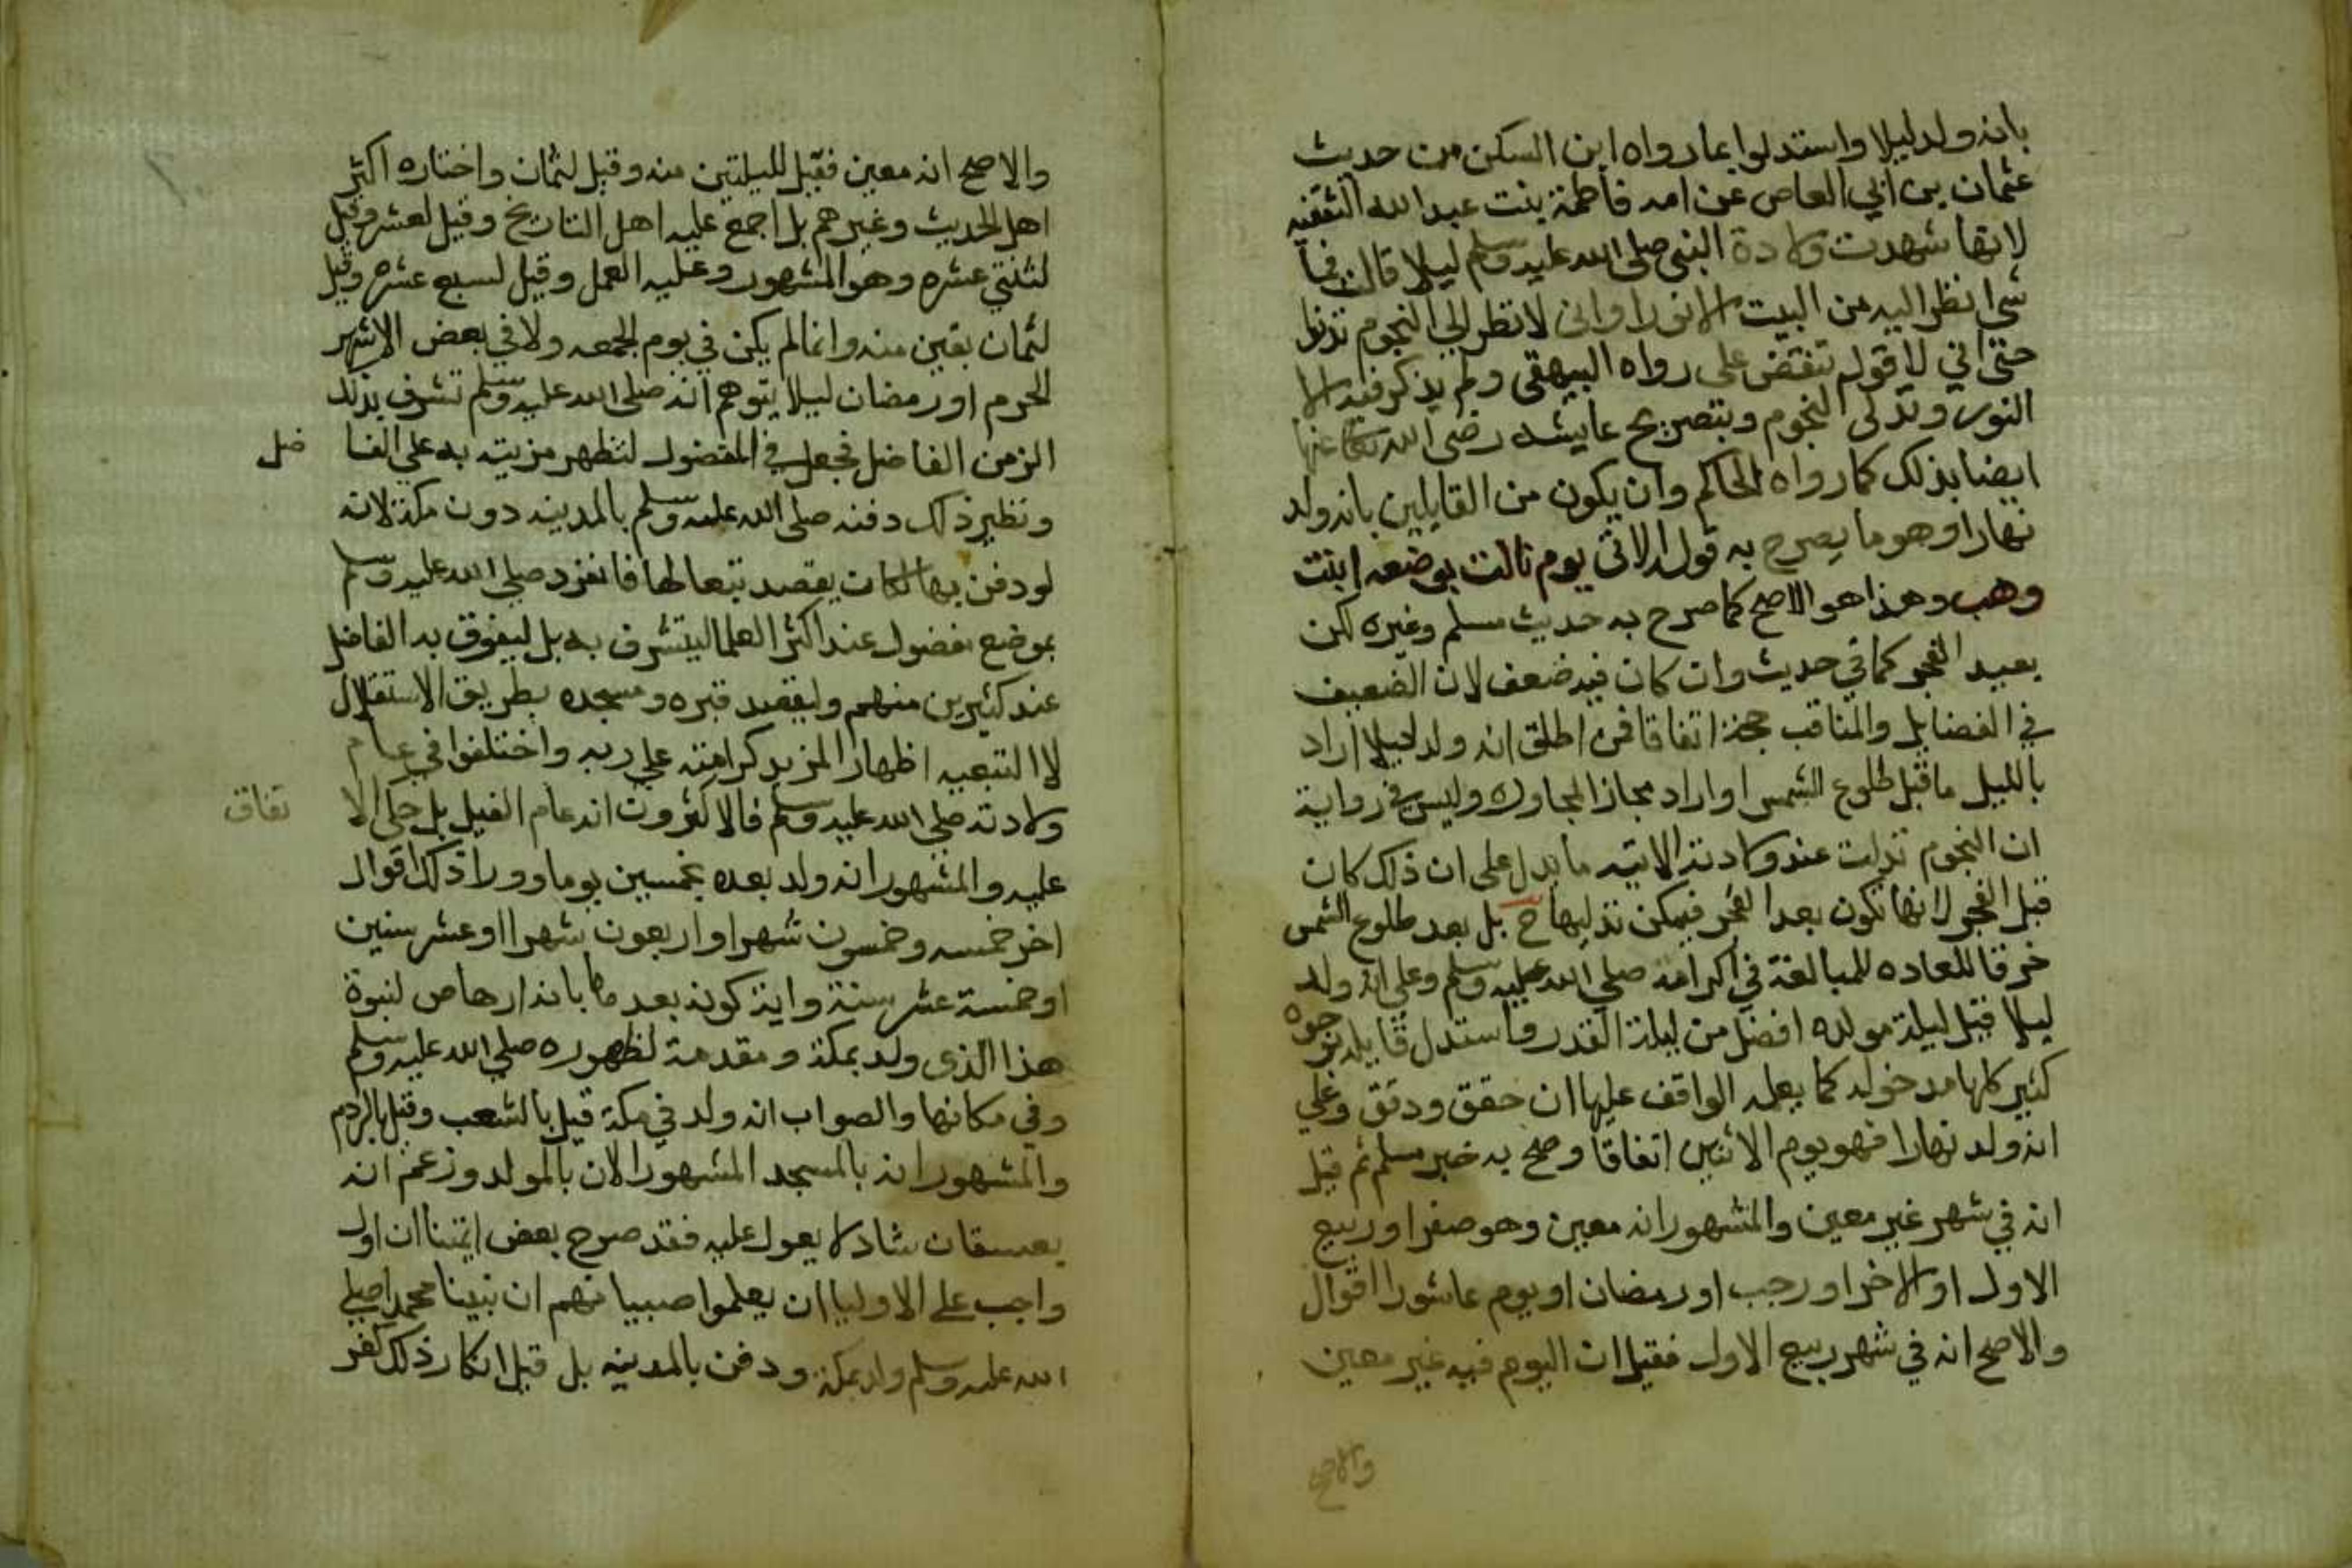 بانه ولد ليلا واستدلوا بما رواه ابن السكن من حديث
عثمان بن ابي العاص عن امه فاطمة بنت عبد الله الثقفيه
لانها شهدت ولادة النبي صلى الله عليه وسلم ليلا قالت فما
شي انظر اليه من البيت الا نورا واني لانظر الي النجوم تدنوا
حتى اني لاقول تقتض على رواه البيهقى ولم يذكر فيه الا
النور وتدلى النجوم وبتصريح عايشه رضى الله تعالى عنها
ايضا بذلك كما رواه الحاكم وان يكون من القايلين بانه ولد
نهارا وهو ما يصرح به قوله الاتى يوم نالت بوضعه ابنت
وهب وهذا هو الاصح كما صرح به حديث مسلم وغيره لكن
بعيد الفجر كما في حديث وان كان فيه ضعف لان الضعيف
في الفضايل والمناقب حجة اتفاقا فمن اطلق انه ولد ليلا اراد
بالليل ما قبل طلوع الشمس او اراد مجاز المجاوره وليس في رواية
ان النجوم تدلت عند ولادته الاتيه ما يدل على ان ذلك كان
قبل الفجر لانها تكون بعد الفجر فيمكن تدليها ح بل بعد طلوع الشمس
خرقا للعاده للمبالغة في اكرامه صلي الله عليه وسلم وعلي انه ولد
ليلا قيل ليلة مولده افضل من ليلة القدر واستدل قايله بوجوه
كثير كلها مدخوله كما يعلمه الواقف عليها ان حقق ودقق وعلي
انه ولد نهارا فهو يوم الاثنين اتفاقا وصح به خبر مسلم ثم قيل
انه في شهر غير معين والمشهور انه معين وهو صفر او ربيع
الاول او الاخر او رجب او رمضان او يوم عاشورا اقوال
والاصح انه في شهر ربيع الاول فقيل ان اليوم فيه غير معين
والاصح
والاصح انه معين فقيل لليلتين منه وقيل لثمان واختاره اكثر
اهل الحديث وغيرهم بل اجمع عليه اهل التاريخ وقيل لعشر وقيل
لثنتي عشره وهو المشهور وعليه العمل وقيل لسبع عشره وقيل
لثمان بقين منه وانما لم يكن في يوم الجمعه ولا في بعض الاشهر
الحرم او رمضان ليلا يتوهم انه صلى الله عليه وسلم تشرف بذلك
الزمن الفاضل فجعل في المفضول لتظهر مزيته به علي الفاضل
ونظير ذلك دفنه صلى الله عليه وسلم بالمدينه دون مكة لانه
لو دفن بها لكان يقصد تبعا لها فانفرد صلي الله عليه وسلم
بموضع مفضول عند اكثر العلما ليتشرف به بل ليفوق به الفاضل
عند كثيرين منهم وليقصد قبره ومسجده بطريق الاستقلال
لا التبعيه اظهارا لمزيد كرامته علي ربه واختلفوا في عام
ولادته صلي الله عليه وسلم فالاكثرون انه عام الفيل بل حكي الاتفاق
عليه والمشهور انه ولد بعده بخمسين يوما وورا ذلك اقوال
اخر خمسه وخمسون شهرا او اربعون شهرا او عشر سنين
او خمسة عشر سنة وايد كونه بعدها بانه ارهاص لنبوة
هذا الذى ولد بمكة ومقدمة لظهوره صلي الله عليه وسلم
وفي مكانها والصواب انه ولد في مكة قيل بالشعب وقيل بالردم
والمشهور انه بالمسجد المشهور الان بالمولد وزعم انه
بعسفان شاد لا يعول عليه فقد صرح بعض ايمتنا ان اول
واجب على الاوليا ان يعلموا صبيانهم ان نبينا محمدا صلي
الله عليه وسلم ولد بمكة ودفن بالمدينه بل قيل انكار ذلك كفر